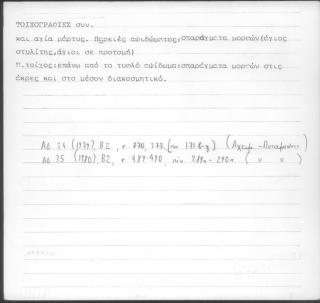 ΤΟΙΧΟΓΡΑΦΙΕΣ συν.
και αγία μάρτυς. Παρειές αψιδώματος:σπαράγματα μορφών(άγιος
στυλίτης,άγιοι σε προτομή)
Π.τοίχος:επάνω από το τυφλό αψίδωμα:σπαράγματα μορφών στις
άκρες και στο μέσον διακοσμητικό.
ΑΔ 34 (1979), Β2, σ. 370, 373, (
ΑΔ 35 (1980), Β2, σ. 489-490, πίν. 289α - 290α ( " " )